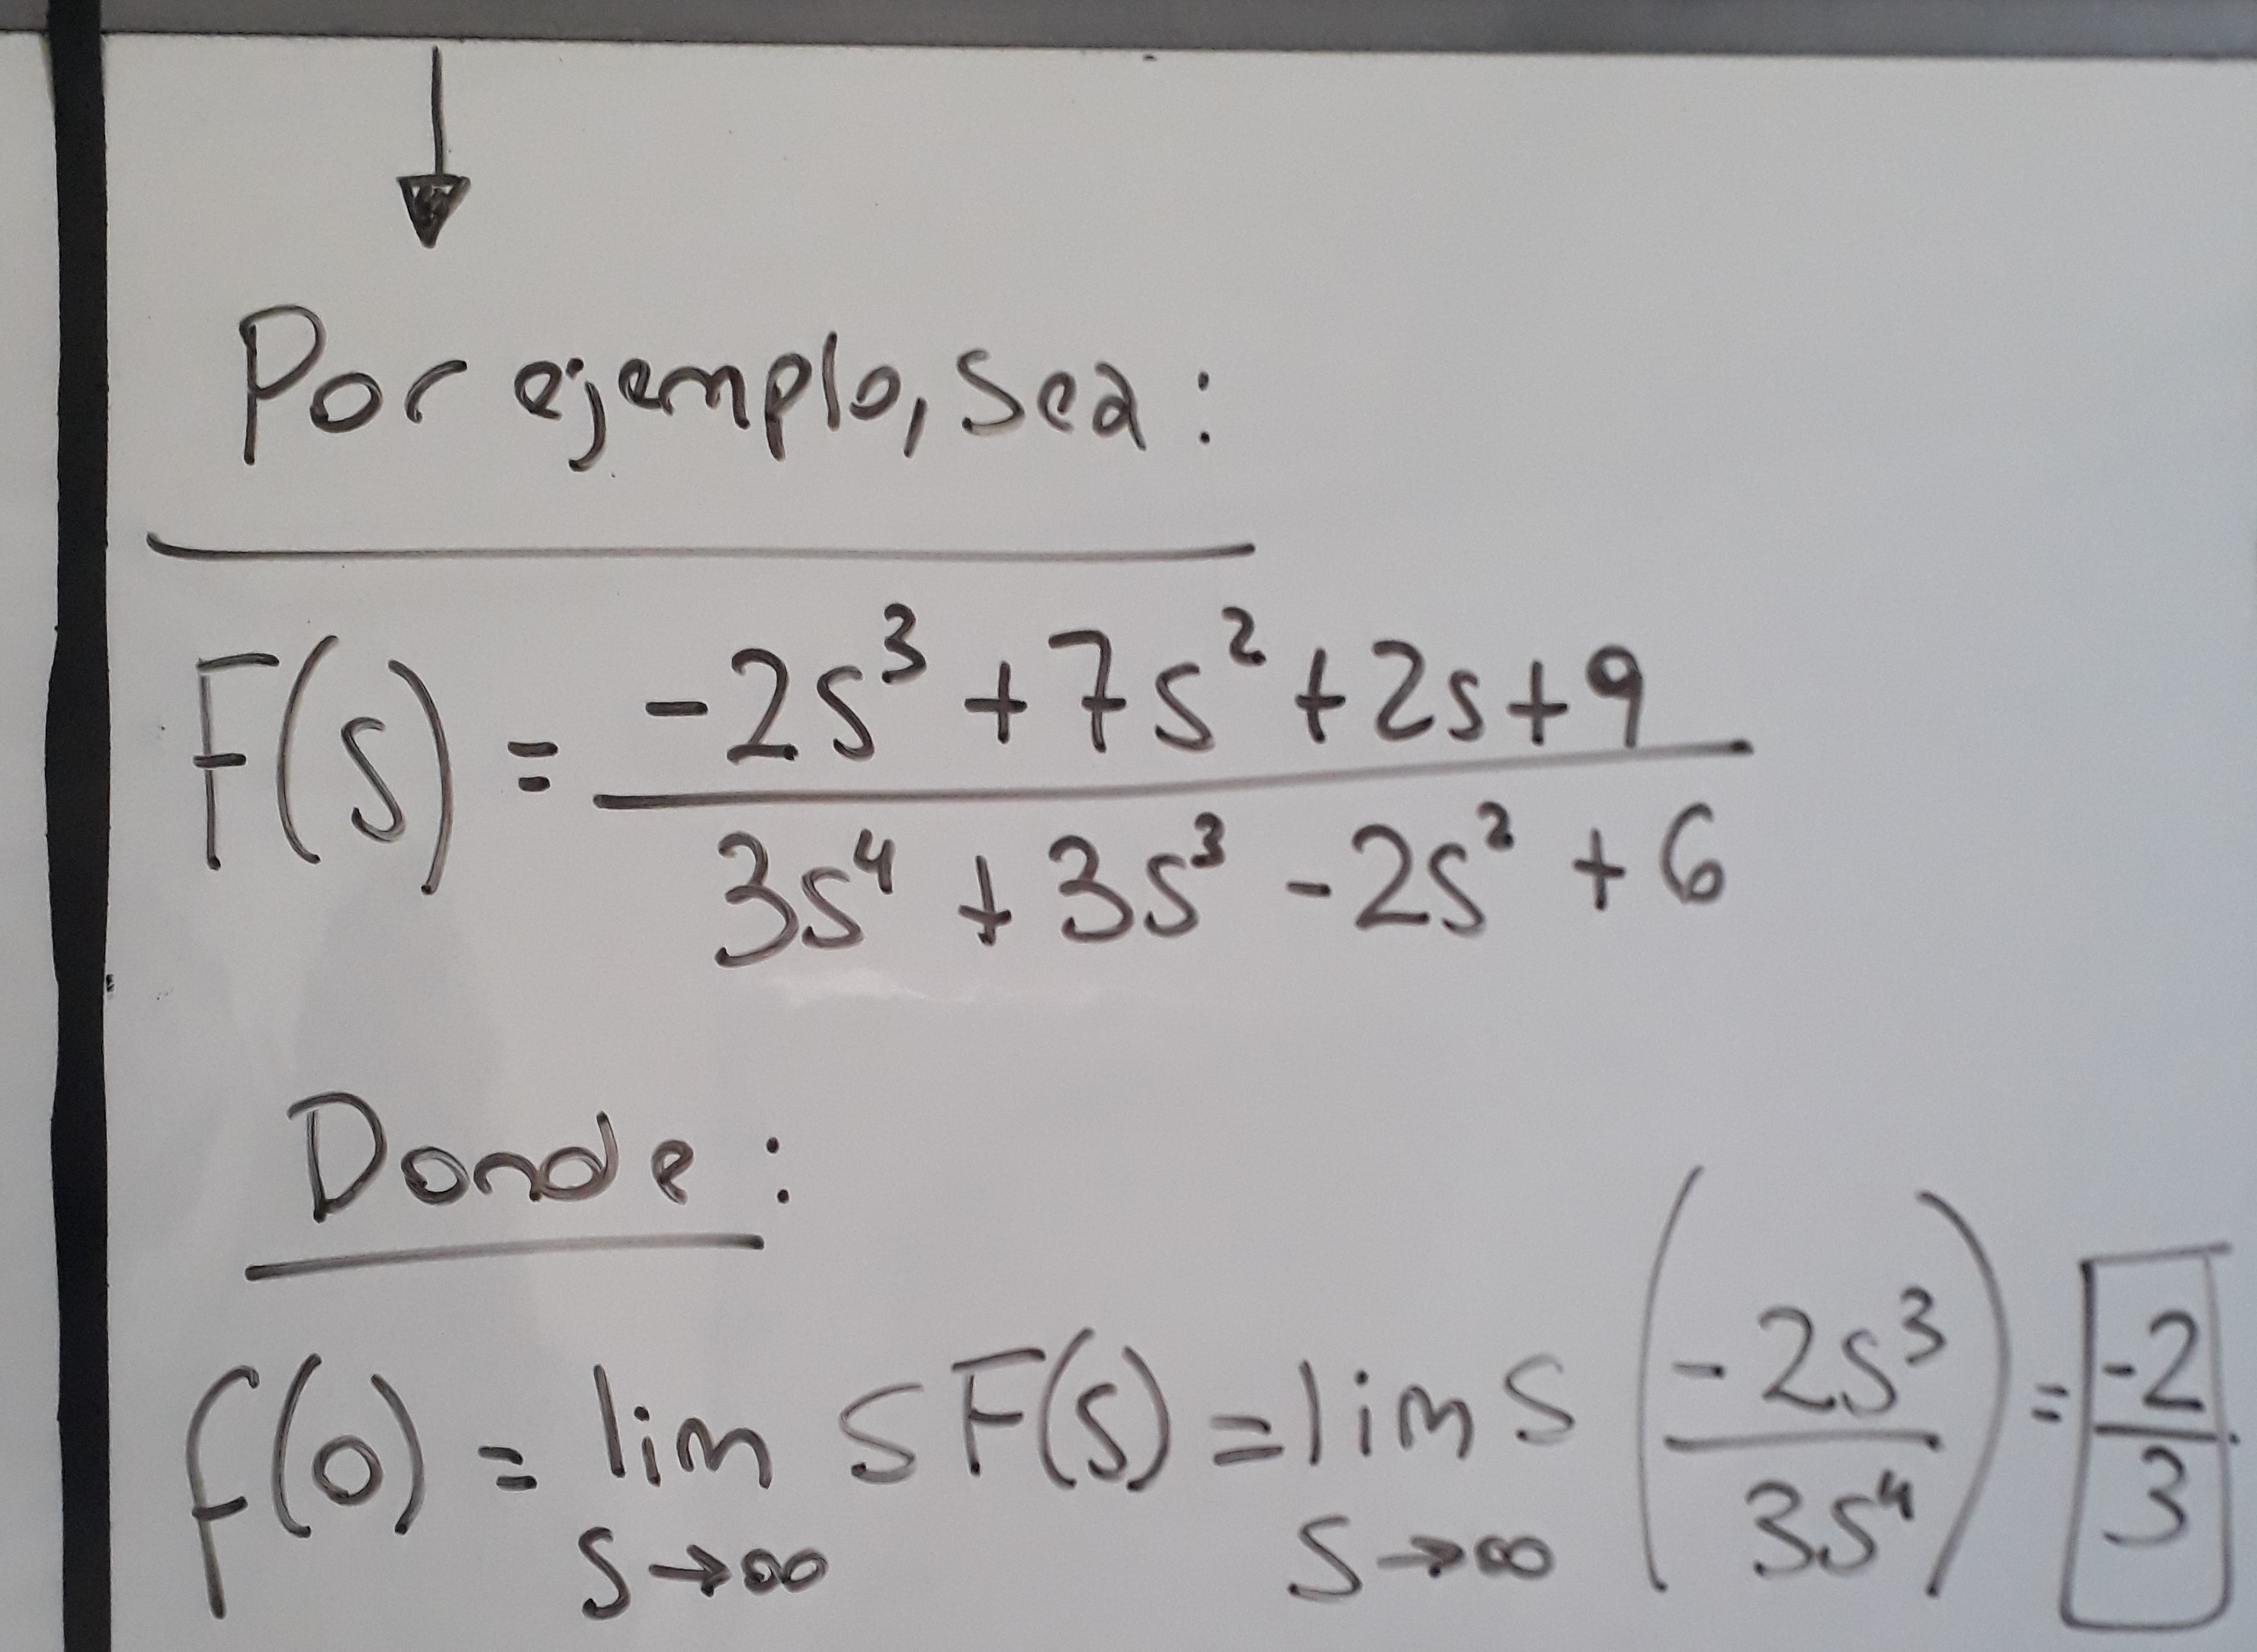 Por ejemplo, sea:
F(s) = (-2s³ + 7s² + 2s + 9) / (3s⁴ + 3s³ - 2s² + 6)
Donde:
f(0) = lim s→∞ sF(s) = lim s→∞ s (-2s³ / 3s⁴) = -2/3.